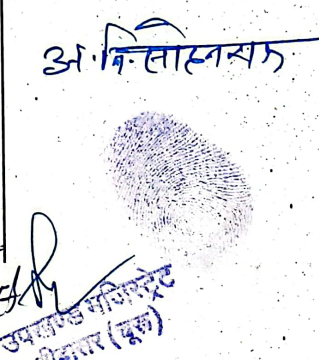 अ.नि. सोहनराम
उपखण्ड मजिस्ट्रेट
(चूरू)